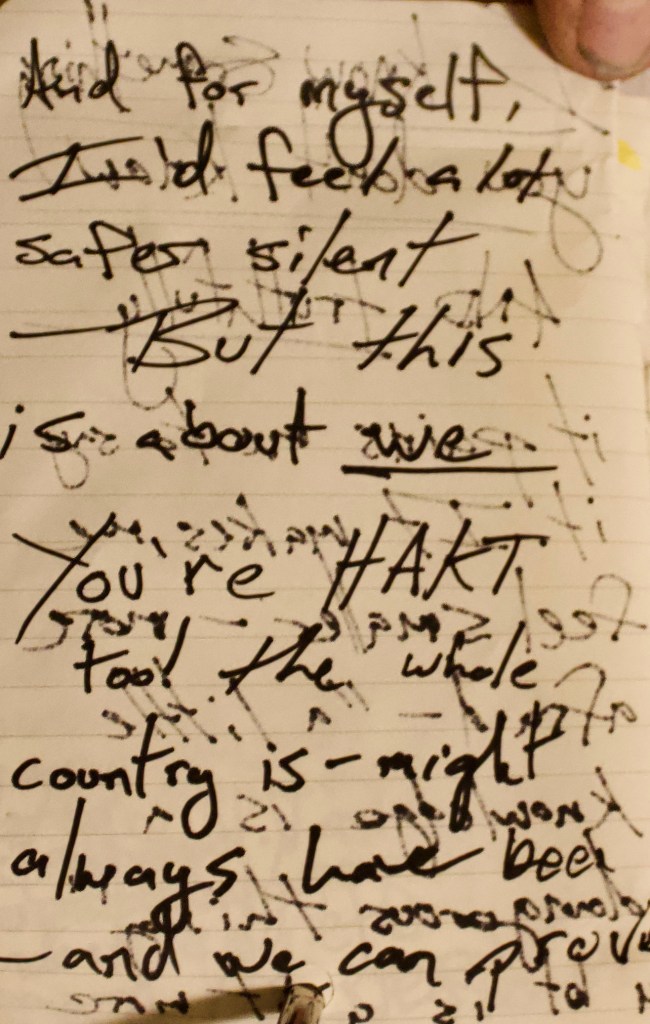 And for myself,
I'd feel a lot
safer silent
—But this
is about we
You're HAKT
too! the whole
country is—might
always have been
—and we can prove